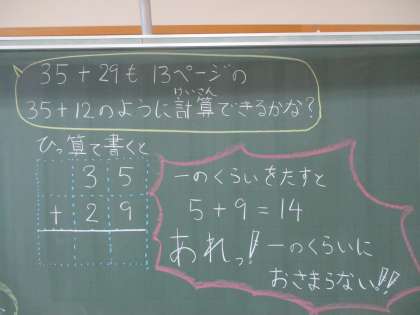 35+29も 13ページの
けいさん
35+12のように計算できるかな?
ひっ算で書くと
35
+29
一のくらいをたすと
5+9=14
あれっ! 一のくらいに
おさまらない!!